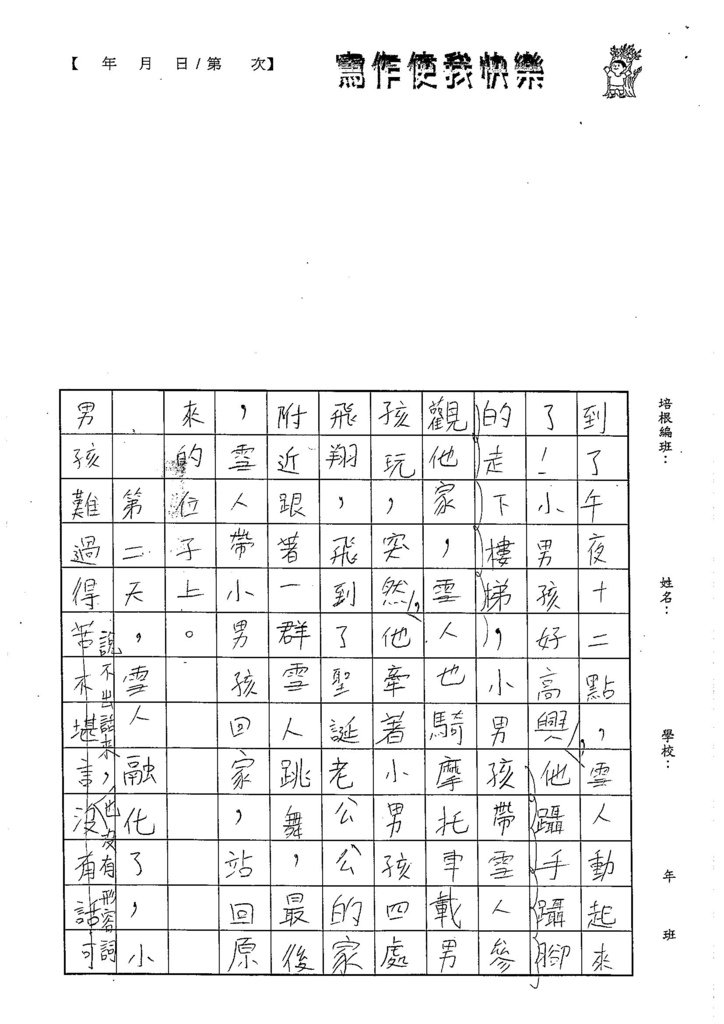 【 年 月 日/第 次】
寫作使我快樂
培根編班：
姓名：
學校：
年 班
到了午夜十二點，雪人動起來
了！小男孩好高興，他躡手躡腳
的走下樓梯，小男孩帶雪人參
觀他家，雪人也騎摩托車載男
孩玩，突然，他牽著小男孩四處
飛翔，飛到了聖誕老公公的家
附近跟著一群雪人跳舞，最後
，雪人帶小男孩回家，站回原
來的位子上。
第二天，雪人融化了，小
男孩難過得苦不堪言，沒有話可
說不出話來，也沒有形容詞